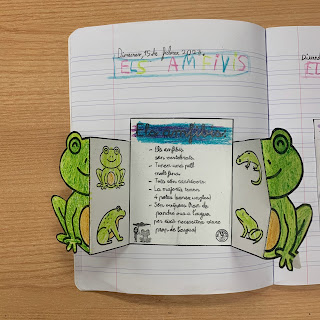 Dimecres, 15 de febrer 2023
ELS AMFIVIS
Els amfibis
- Els amfibis
són vertebrats.
- Tenen una pell
molt fina.
- Tots són carnívors.
- La majoria tenen
4 potes
- Són ovípars
pondre ous a l'aigua
per això necessiten viure
prop de l'aigua